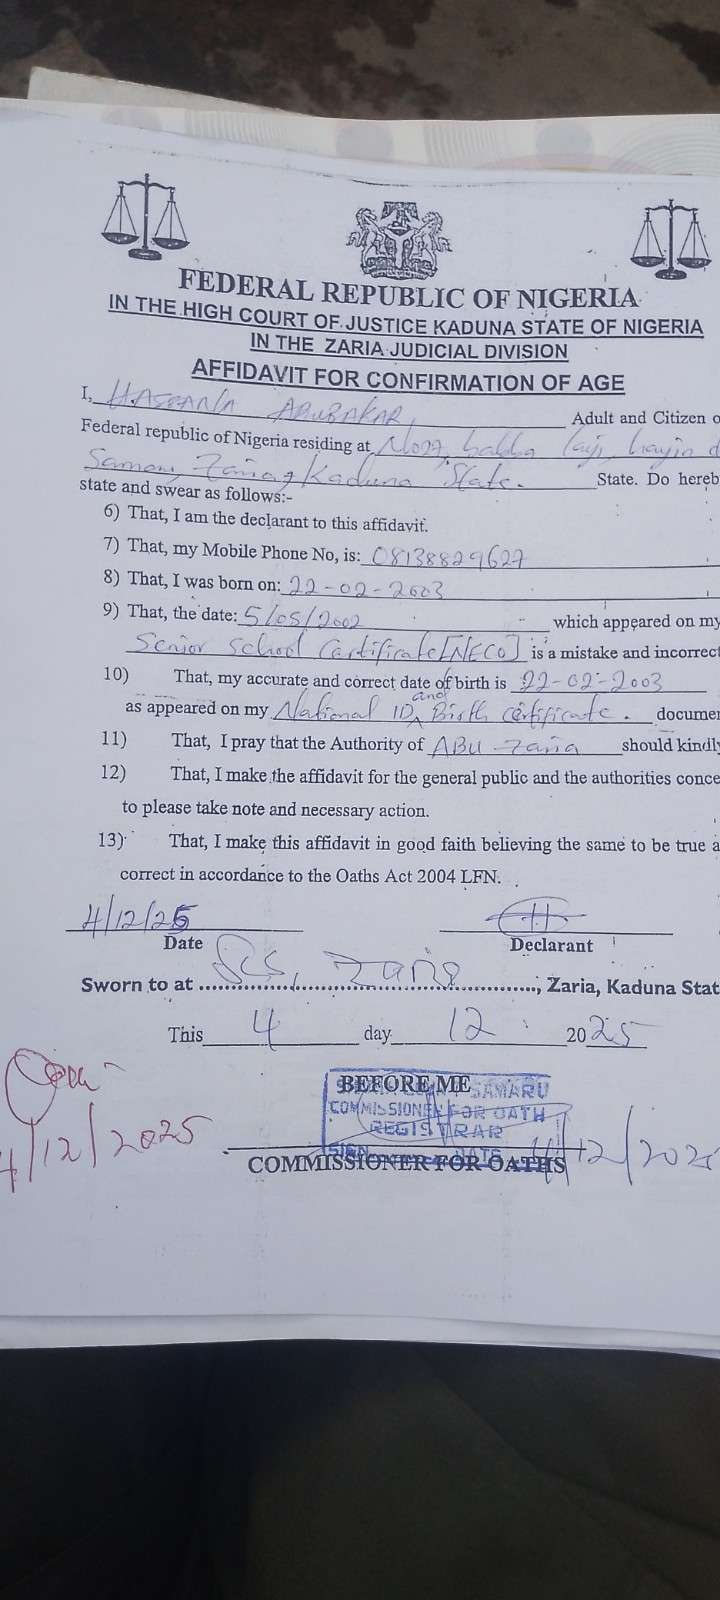 FEDERAL REPUBLIC OF NIGERIA
IN THE HIGH COURT OF JUSTICE KADUNA STATE OF NIGERIA
IN THE ZARIA JUDICIAL DIVISION
AFFIDAVIT FOR CONFIRMATION OF AGE
I, ABUBAKAR, Adult and Citizen o
Federal republic of Nigeria residing at
Zaria Kaduna State. State. Do hereb
state and swear as follows:-
6) That, I am the declarant to this affidavit.
7) That, my Mobile Phone No, is: 08138829627
8) That, I was born on: 22-02-2003
9) That, the date: 5/05/2002 which appeared on my
Senior School Certificate [NECO] is a mistake and incorrect
10) That, my accurate and correct date of birth is 22-02-2003
as appeared on my National ID, and Birth certificate. documen
11) That, I pray that the Authority of ABU Zaria should kindly
12) That, I make the affidavit for the general public and the authorities conce
to please take note and necessary action.
13) That, I make this affidavit in good faith believing the same to be true a
correct in accordance to the Oaths Act 2004 LFN.
4/12/25
Date Declarant
Sworn to at Zaria, Zaria, Kaduna Stat
This 4 day 12 2025
BEFORE ME
SAMARU
COMMISSIONER FOR OATH
REGISTRAR
SIGN DATE
4/12/2025
COMMISSIONER FOR OATHS